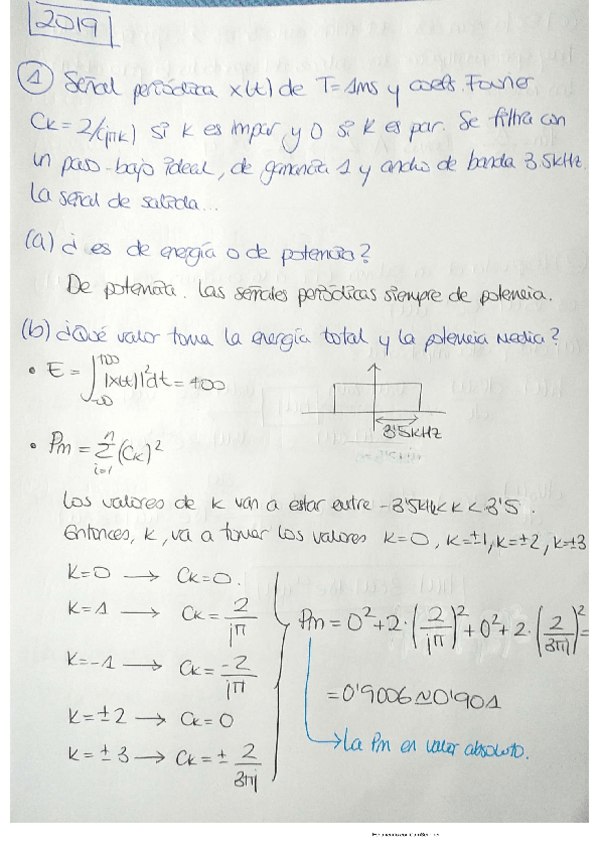 2019
① Señal periódica x(t) de T=1ms y coefs. Fourier
Ck = 2/(jπk) si k es impar y 0 si k es par. Se filtra con
un paso-bajo ideal, de ganancia 1 y ancho de banda 3'5kHz.
La señal de salida...
(a) ¿ es de energía o de potencia?
De potencia. Las señales periódicas siempre de potencia.
(b) ¿Qué valor toma la energía total y la potencia media?
• E = ∫_{-∞}^{+∞} |x(t)|² dt = +∞
3'5kHz
• Pm = Σ_{i=1}^{n} (Ck)²
Los valores de k van a estar entre -3'5kHz < k < 3'5.
Entonces, k, va a tomar los valores k=0, k=±1, k=±2, k=±3
k=0 → Ck=0.
k=1 → Ck = 2/jπ
Pm = 0² + 2·(2/jπ)² + 0² + 2·(2/3πj)² =
k=-1 → Ck = -2/jπ
= 0'9006 ≃ 0'901
k=±2 → Ck=0
→ La Pm en valor absoluto.
k=±3 → Ck = ± 2/3πj